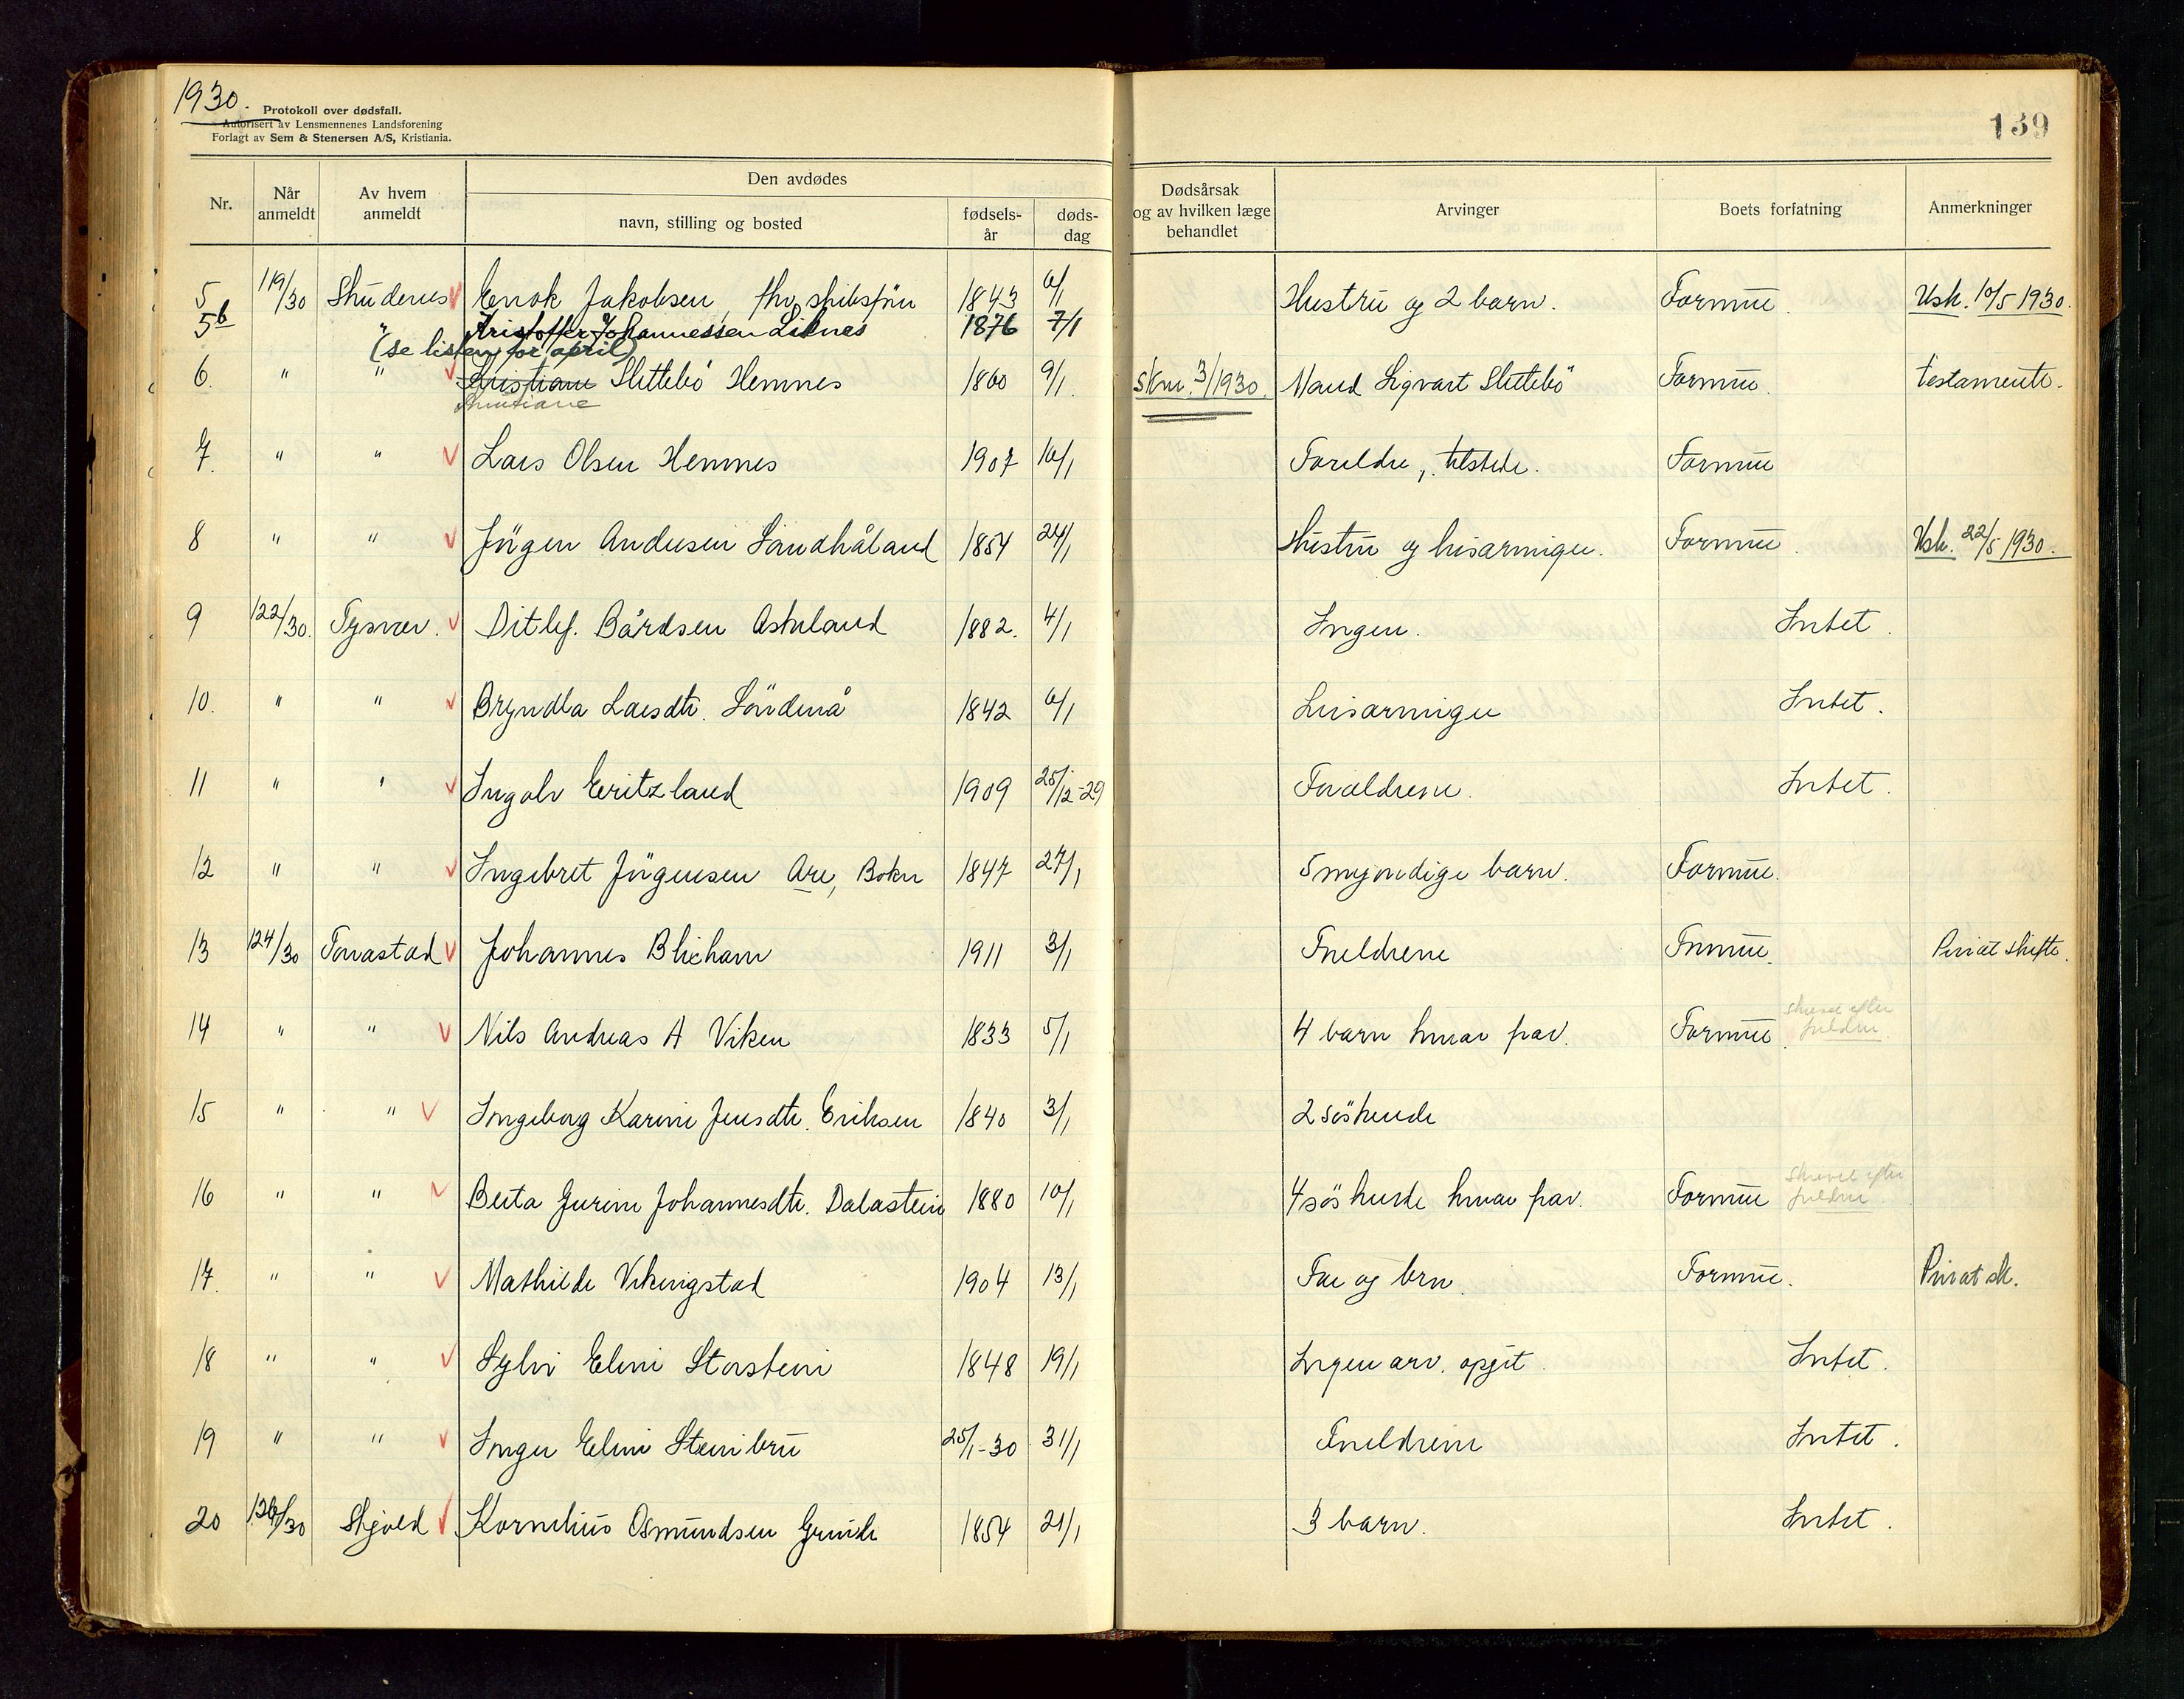 1930.
Protokoll over dødsfall.
Autorisert av Lensmennenes Landsforening
Forlagt av Sem & Stenersen A/S, Kristiania.
139
Nr. Når anmeldt Av hvem anmeldt Den avdødes navn, stilling og bosted fødselsår dødsdag Dødsårsak og av hvilken læge behandlet Arvinger Boets forfatning Anmerkninger
5 119/30 Skudenes Enok Jakobsen, fhv. skibsfører 1843 6/1 Hustru og 2 barn. Formue Usk. 10/5 1930.
5b " Kristoffer Johannessen Liknes 1876 7/1
(se listen for april)
6. " " Kristiane Slettebö Hemnes 1860 9/1. skm. 3/1930. Mand Sigvart Slettebö Formue. testamente.
Kristiane
7. " " Lars Olsen Hemnes 1907 10/1 Foreldre, tilstede. Formue
8 " " Jörgen Andersen Sandhåland 1854 24/1 Hustru og livsarvinger. Formue. Usk. 22/5 1930.
9 122/30. Tysvær. Ditlef. Bårdsen Askeland 1882. 4/1 Ingen. Intet.
10. " " Bryndla Larsdtr. Söndenå 1842 6/1 Livsarvinger Intet.
11 " " Ingolv Eeritzland 1909 25/12-29 Forældrene. Intet.
12 " " Ingebret Jörgensen Are, Bokn 1847 27/1 5 myndige barn. Formue.
13 124/30 Torvastad Johannes Blixham 1911 3/1 Foreldrene Formue. Privat skifte.
14 " " Nils Andreas A Viken 1833 5/1 4 barn hvorav fravær. Formue. skrevet efter foreldre.
15 " " Ingeborg Karine Jensdtr. Eriksen 1840 3/1 2 söskende
16 " " Berta Gurine Johannesdtr. Dalastein 1880 10/1 4 söskende hvorav frav. Formue skrevet efter foreldre.
17. " " Mathilde Vikingstad 1904 13/1 Far og brn. Formue. Privat sk.
18 " " Sylvi Eline Storstein 1848 19/1 Ingen arv. opgit. Intet.
19 " " Inger Eline Steinbru 25/1-30 31/1 Foreldrene Intet.
20 126/30 Skjold Kornelius Osmundsen Grinde 1854 21/1 3 barn. Intet.